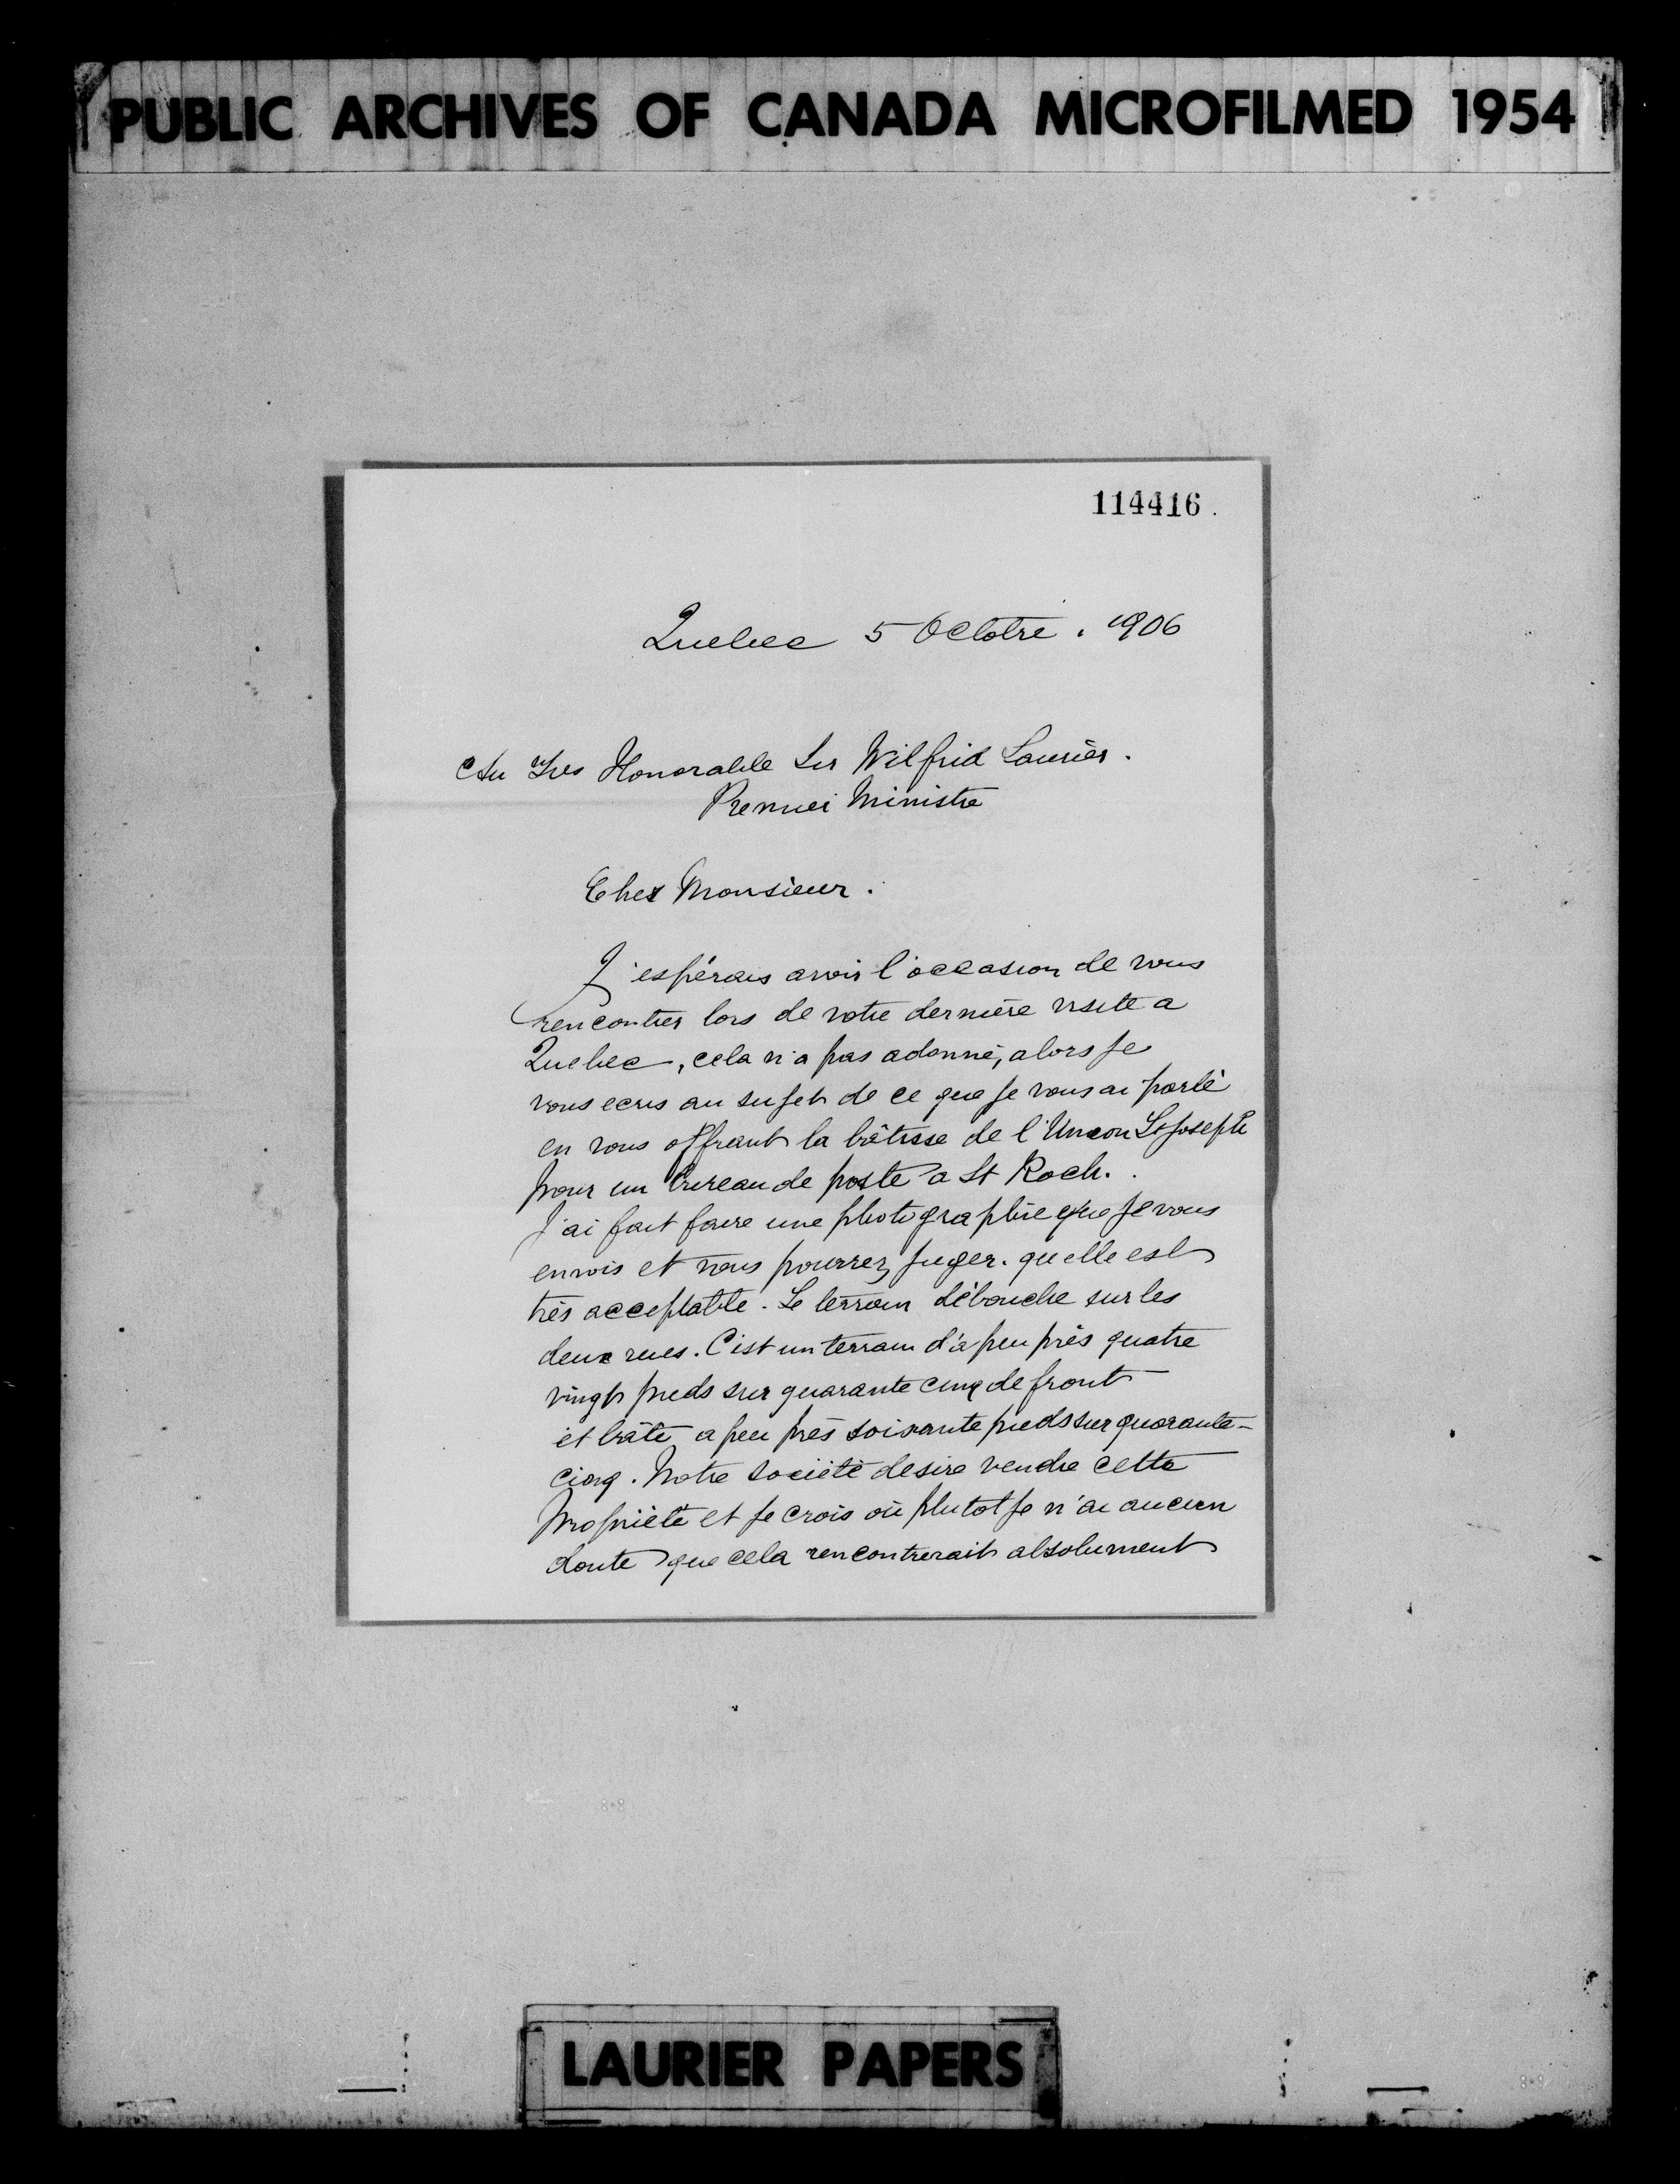 PUBLIC ARCHIVES OF CANADA MICROFILMED 1954
114416.
Quebec 5 Octobre. 1906
Au Tres Honorable Sir Wilfrid Laurier.
Premier Ministre
Cher Monsieur.
J'espérais avoir l'occasion de vous
rencontrer lors de votre dernière visite a
Quebec, cela n'a pas adonné, alors je
vous ecris au sujet de ce que je vous ai parlé
en vous offrant la bâtisse de l'Union St Joseph
pour un bureau de poste a St Roch.
J'ai fait faire une photographie que je vous
envois et vous pourrez juger. quelle est
très acceptable. Le terrain débouche sur les
deux rues. C'est un terrain d'a peu près quatre
vingt pieds sur quarante cinq de front
et bâti a peu près soixante pieds sur quarante-
cinq. Notre Société desire vendre cette
propriété et je crois où plutot je n'ai aucun
doute que cela rencontrerait absolument
LAURIER PAPERS